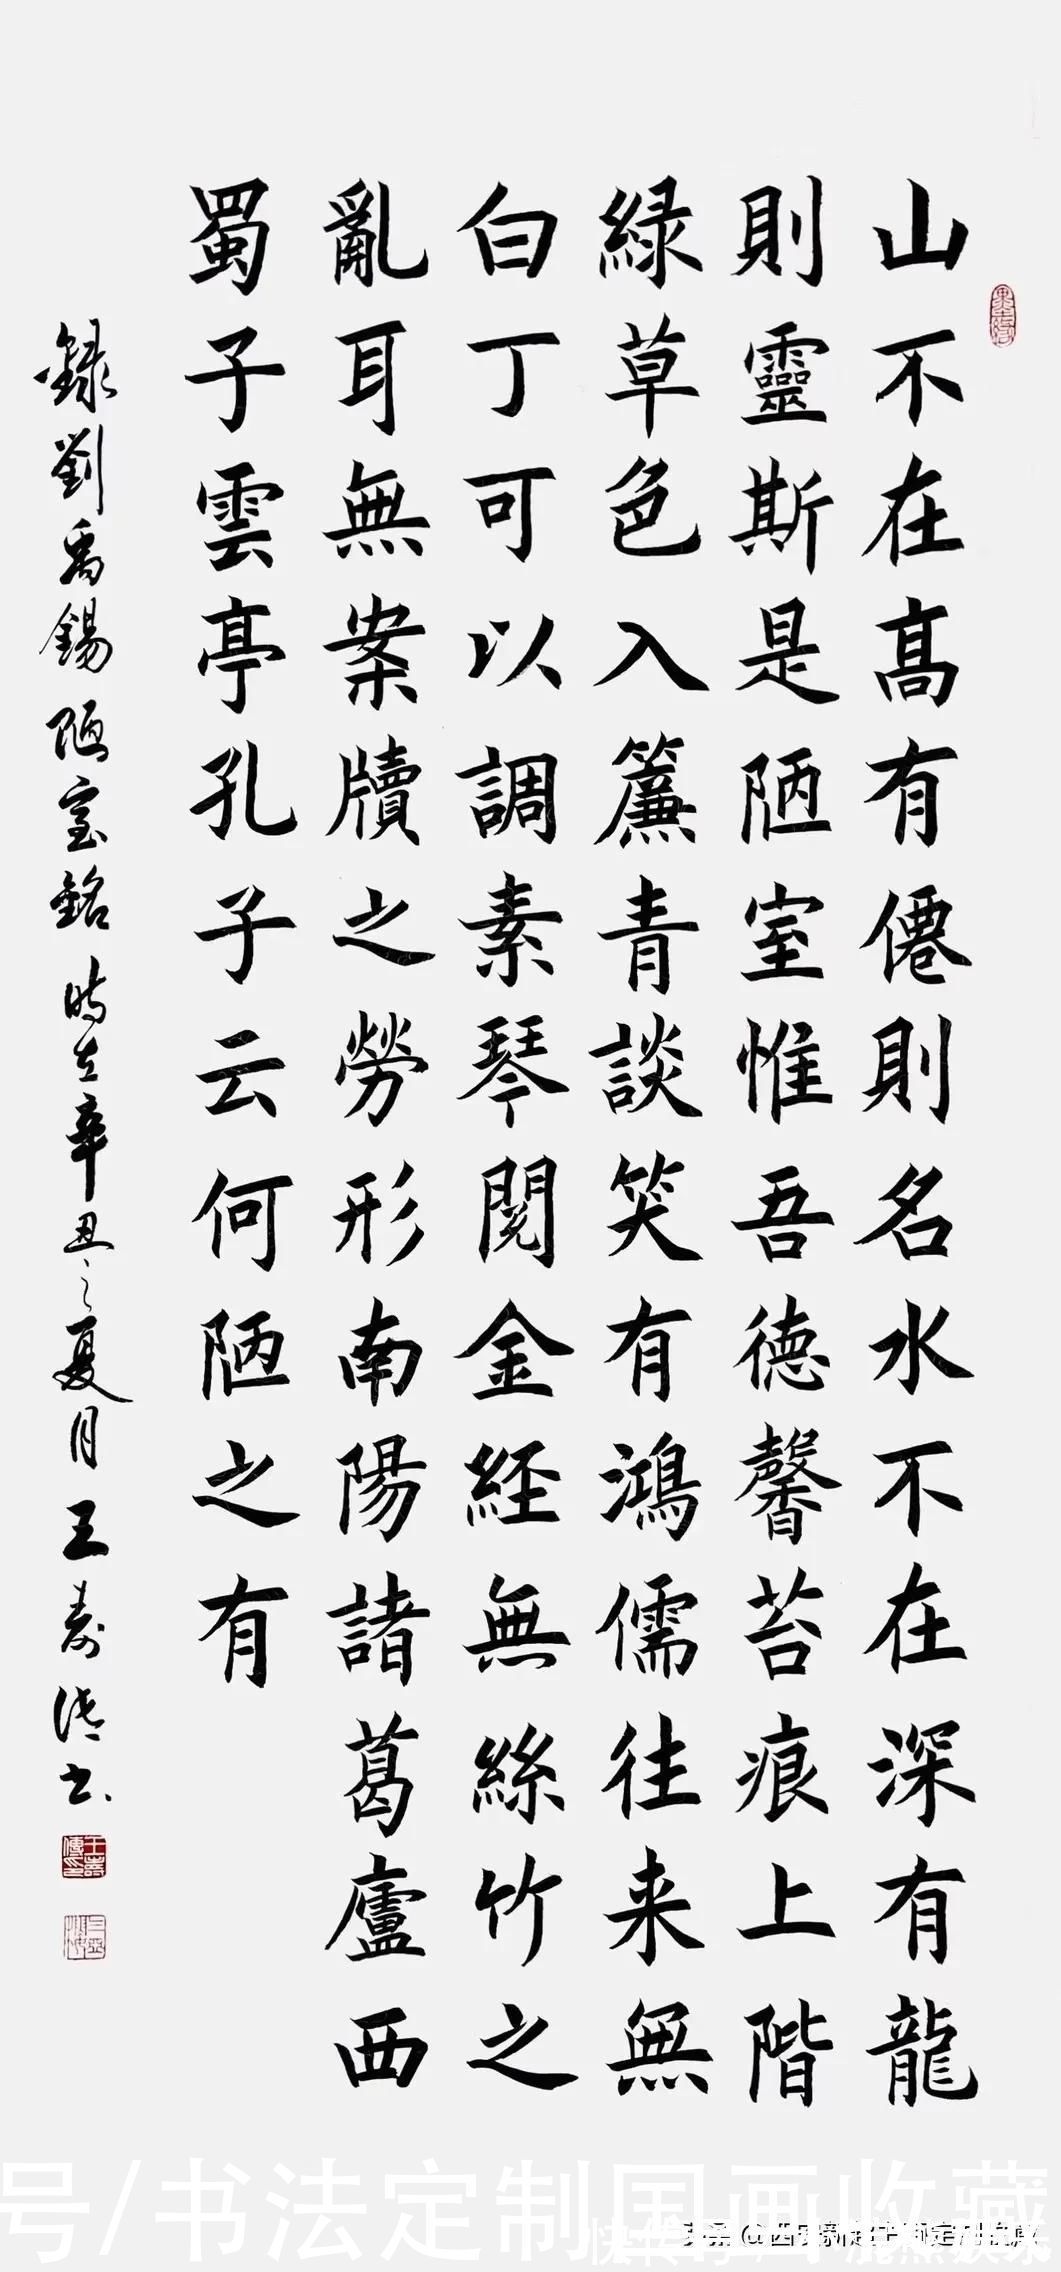 山不在髙有僊則名水不在深有龍
則靈斯是陋室惟吾德馨苔痕上階
緑草色入簾青談笑有鴻儒往来無
白丁可以調素琴閱金経無絲竹之
亂耳無案牘之勞形南陽諸葛廬西
蜀子雲亭孔子云何陋之有
録劉禹錫陋室銘時在辛丑之夏月王寿傳书
号/书法定制国画收藏